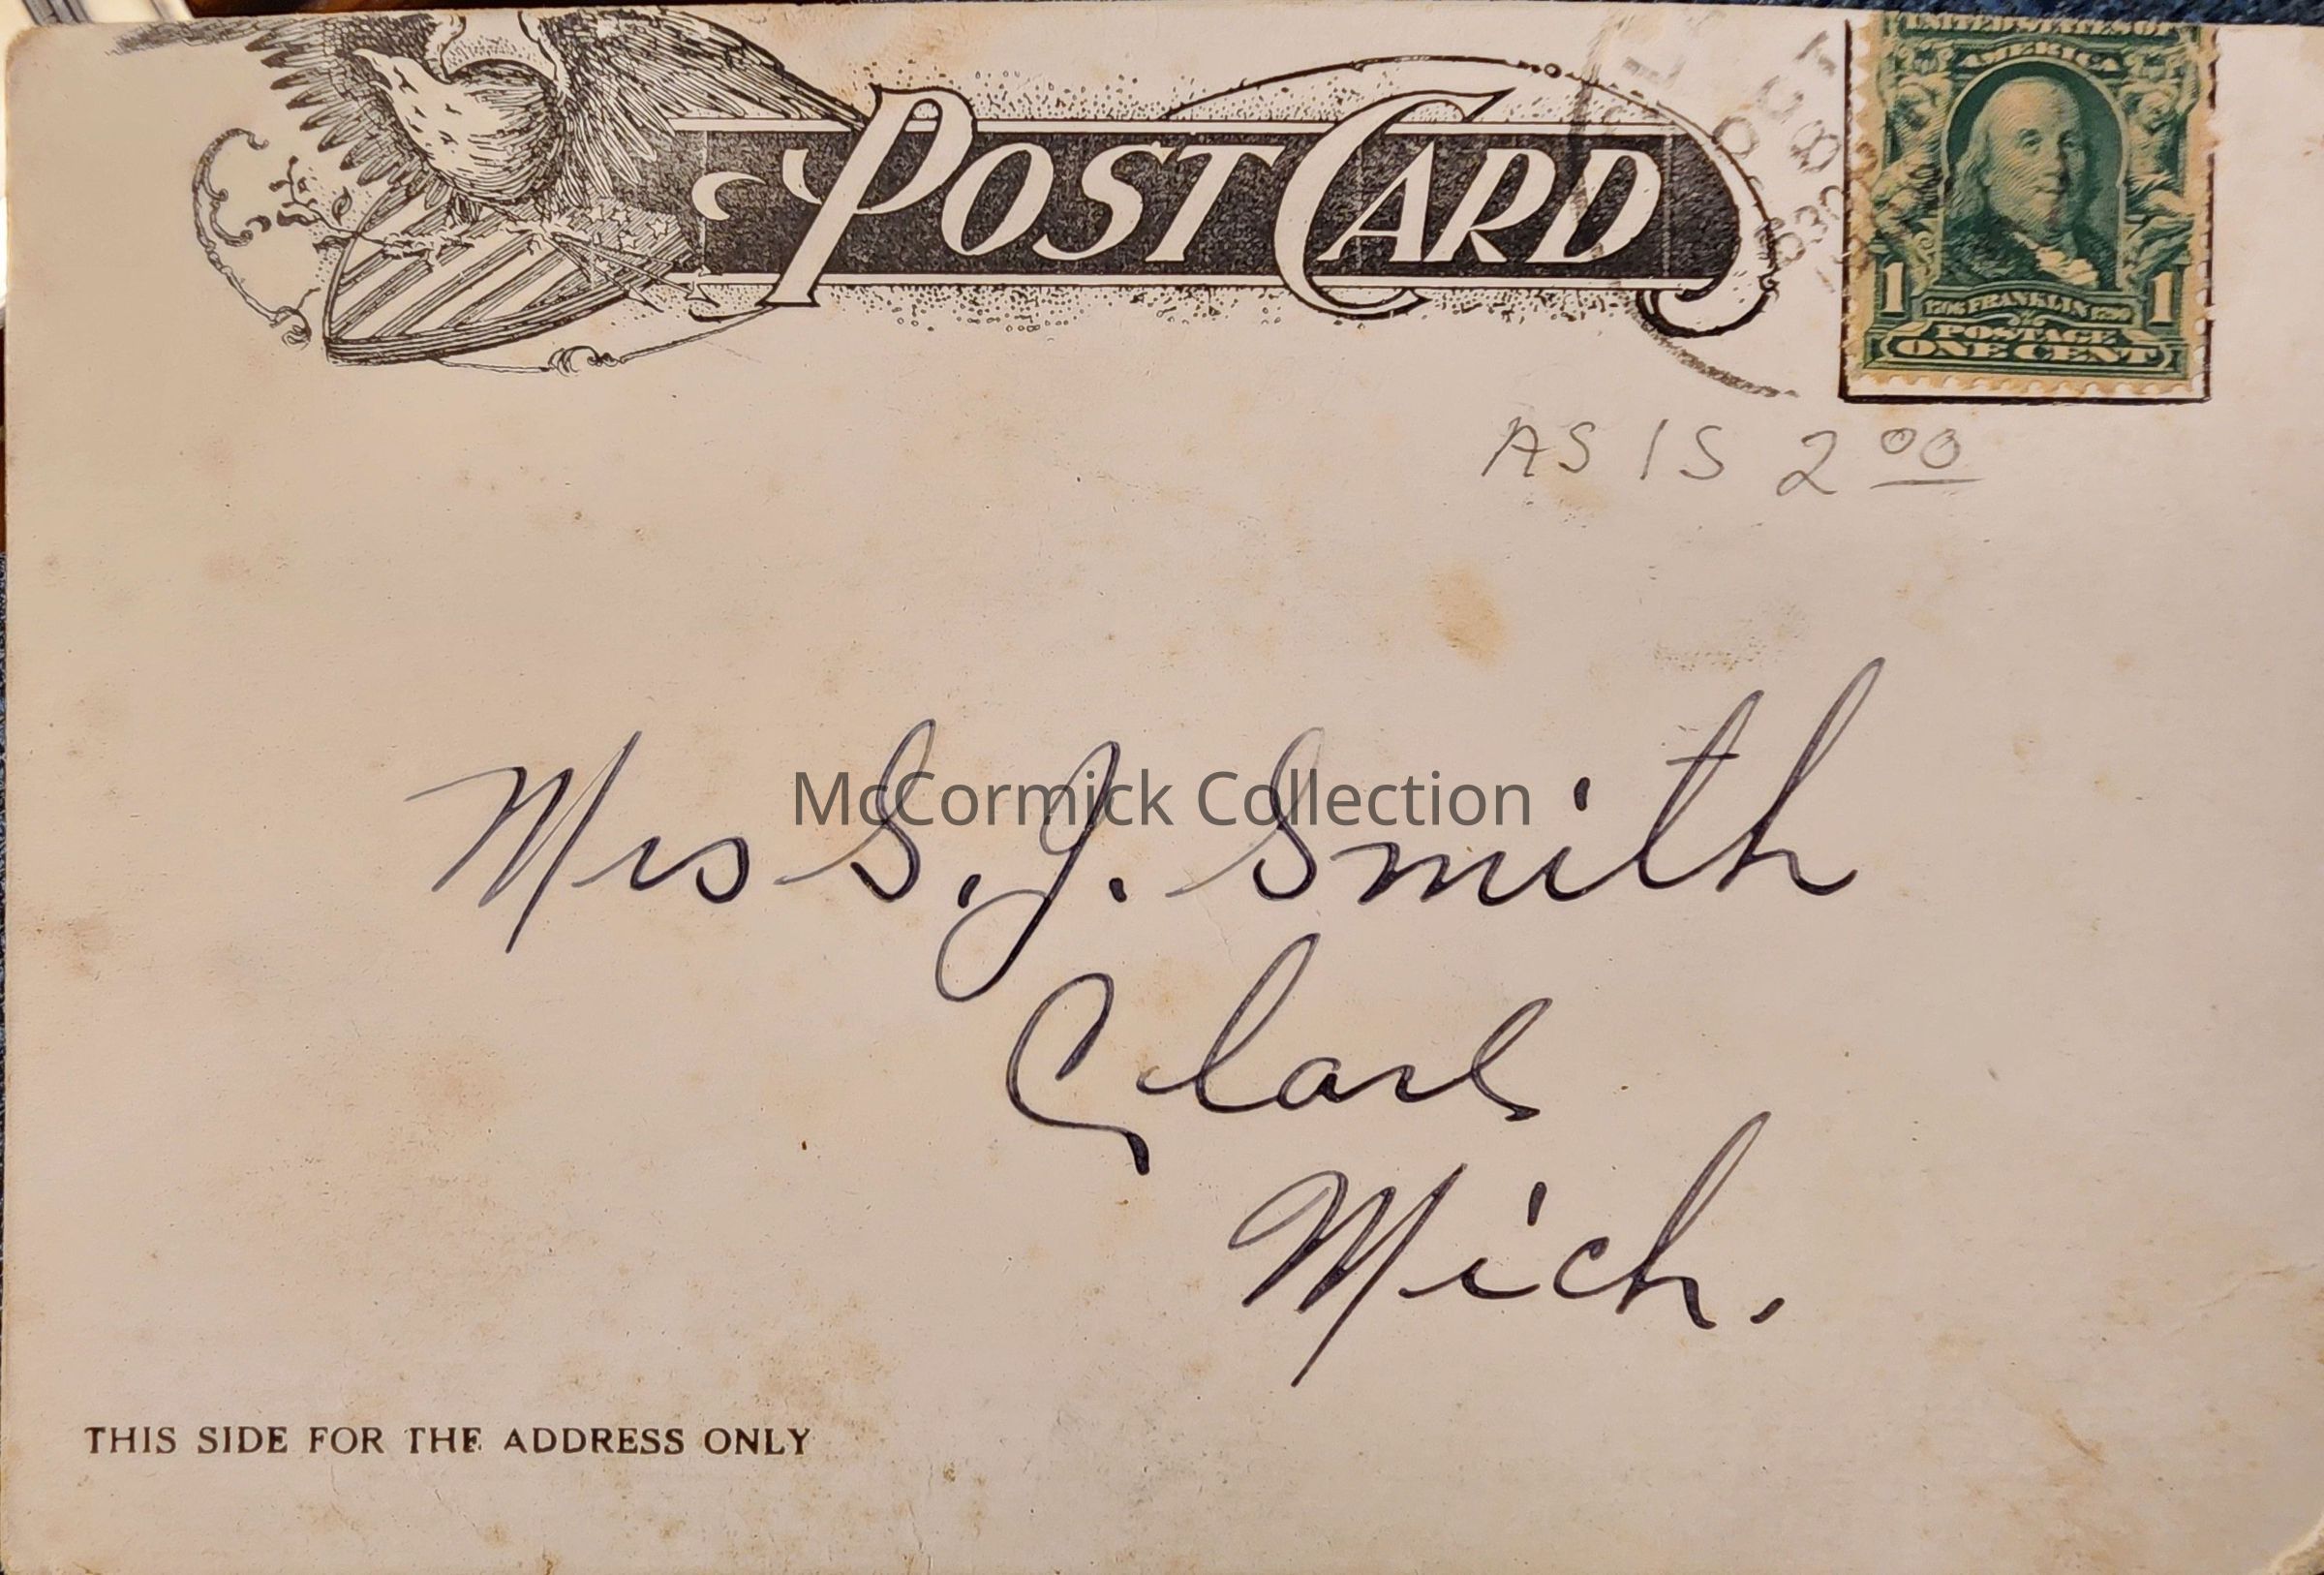 POST CARD
UNITED STATES OF
AMERICA
1 1706 FRANKLIN 1790 1
POSTAGE
ONE CENT
AS IS 2 00
Mrs S. J. Smith
McCormick Collection
Mich.
THIS SIDE FOR THE ADDRESS ONLY